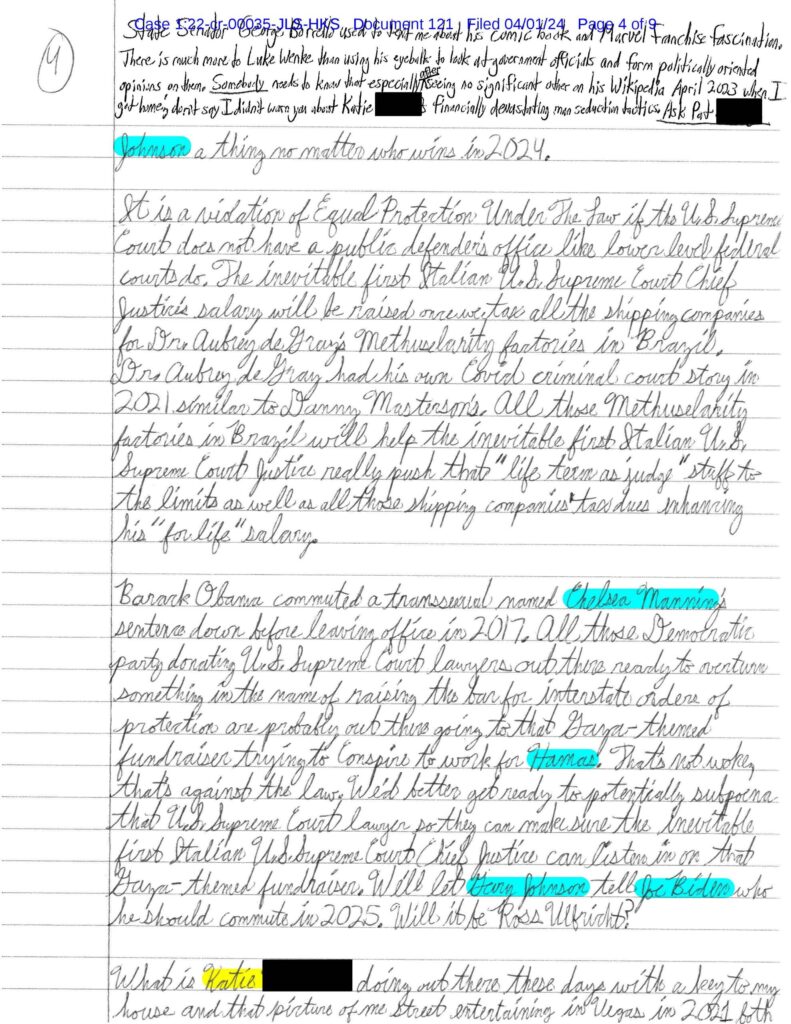 Case 1:22-cr-00035-JLS-HKS Document 121 Filed 04/01/24 Page 4 of 9
4
State Senator George Borrello used to text me about his comic book and Marvel franchise fascination.
There is much more to Luke Wenke than using his eyeballs to look at government officials and form politically oriented
opinions on them. Somebody needs to know that especially after seeing no significant other on his Wikipedia April 2023 when I
got home, don't say I didn't warn you about Katie financially devastating man seduction tactics. Ask Pat
Johnson a thing no matter who wins in 2024.
It is a violation of Equal Protection Under The Law if the U.S. Supreme
Court does not have a public defender's office like lower level federal
courts do. The inevitable first Italian U.S. Supreme Court Chief
Justice's salary will be raised once we tax all the shipping companies
for Dr. Aubrey de Gray's Methuselarity factories in Brazil.
Dr. Aubrey de Gray had his own Covid criminal court story in
2021 similar to Danny Masterson's. All those Methuselarity
factories in Brazil will help the inevitable first Italian U.S.
Supreme Court Justice really push that "life term as judge" stuff to
the limits as well as all those shipping companies' tax dues enhancing
his "for life" salary.
Barack Obama commuted a transsexual named Chelsea Manning's
sentence down before leaving office in 2017. All those Democratic
party donating U.S. Supreme Court lawyers out there ready to overturn
something in the name of raising the bar for interstate orders of
protection are probably out there going to that Gaza-themed
fundraiser trying to conspire to work for Hamas. That's not woke,
that's against the law. We'd better get ready to potentially subpoena
that U.S. Supreme Court lawyer so they can make sure the inevitable
first Italian U.S. Supreme Court Chief Justice can listen in on that
Gaza-themed fundraiser. We'll let Gary Johnson tell Joe Biden who
he should commute in 2025. Will it be Ross Ulbricht?
What is Katie doing out there these days with a key to my
house and that picture of me street entertaining in Vegas in 2021 both